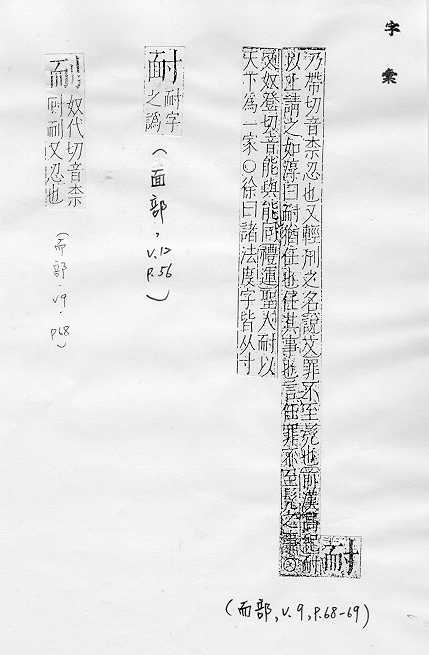 字彙
耐
乃帶切音柰忍也又輕刑之名說文罪不至髡也前漢高紀耐
以上請之如淳曰耐猶任也任其事也言任罪不至髡之事〇
又奴登切音能與能同禮運聖人耐以
天下爲一家〇徐曰諸法度字皆从寸
(而部, v.9, p.68-69)
耐字
之譌
(面部, v.12
p.56)
奴代切音柰
刑又忍也
(而部, v9,
p68)